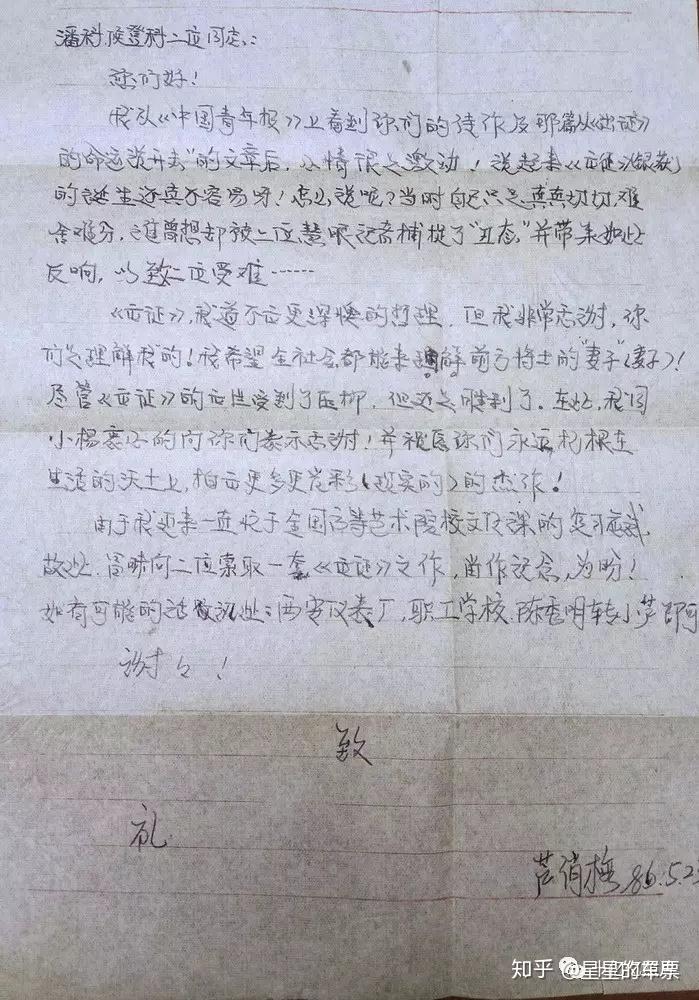 潘科、侯登科二位同志:
您们好!
我从《中国青年报》上看到你们的佳作及那篇"从《出征》
的命运说开去"的文章后,心情很是激动!说起来《出征》(银获)
的诞生还真不容易呀!怎么说呢?当时自己只是真真切切、难
舍难分,谁曾想却被二位慧眼记者捕捉了"丑态,"并带来如此
反响,以致二位受难……
《出征》,我道不出更深懊的哲理,但我非常感谢,你
们是理解我的!我希望全社会都能来理解前方将士的"妻子"(妻子)!
尽管《出征》的出世受到了压抑,但还是胜利了。在此,我同
小杨衷心的向你们表示感谢!并祝愿你们永远扎根在
生活的沃土上,拍出更多更光彩(现实的)的杰作!
由于我近来一直忙于全国高等艺术院校文化课的复习应试
故此冒昧向二位索取一套《出征》之作,尚作记念,为盼!
如有可能的话 西安仪表厂,职工学校,陈秀明转小芦即可
谢々!
致
礼
芦俏梅 86.5.2
知乎 @星星的军票